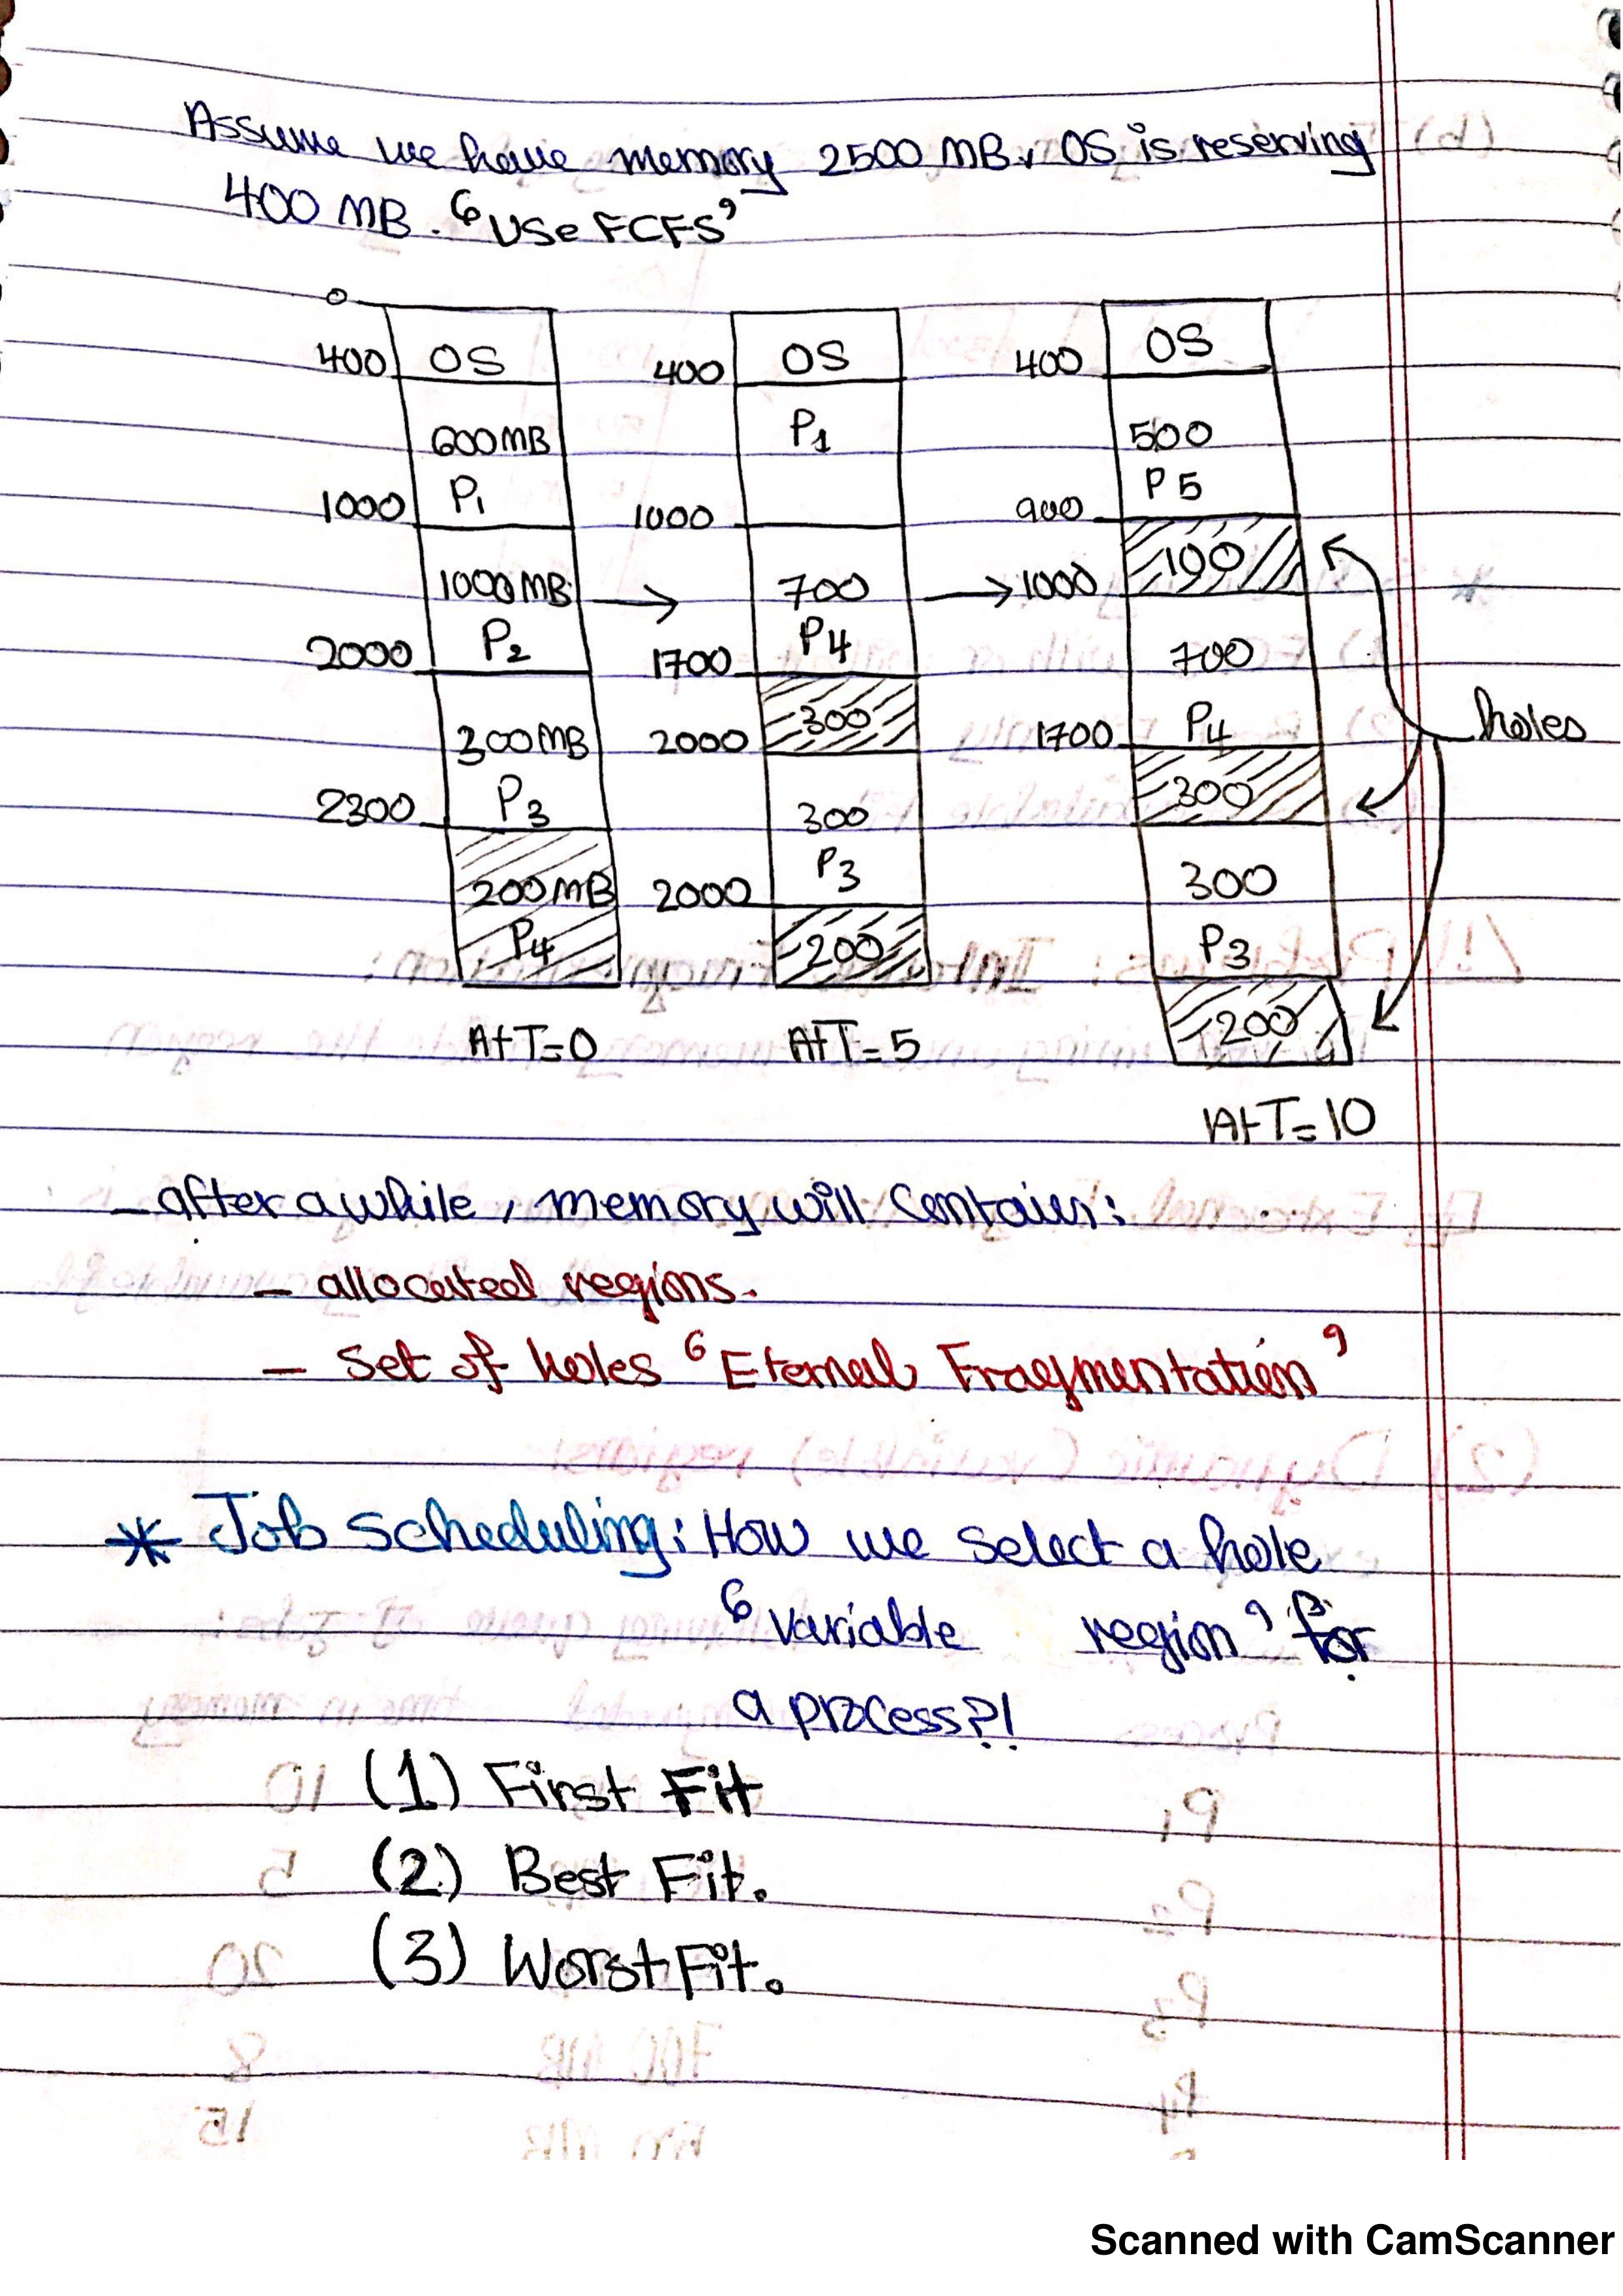 Assume we have memory 2500 MB, OS is reserving
400 MB. "Use FCFS"
0
400 OS
600MB
1000 P1
1000MB
2000 P2
300MB
2300 P3
200MB
P4
At T=0
400 OS
P1
1000
700
1700 P4
2000 300
300
P3
2000
200
At T=5
400 OS
500
P5
900
100
1000
700
1700 P4
300
300
P3
200
At T=10
holes
- after a while, memory will contain:
- allocated regions.
- set of holes "Eternal Fragmentation"
* Job scheduling: How we select a hole
"variable region" for
a process?!
(1) First Fit
(2) Best Fit.
(3) Worst Fit.
Scanned with CamScanner